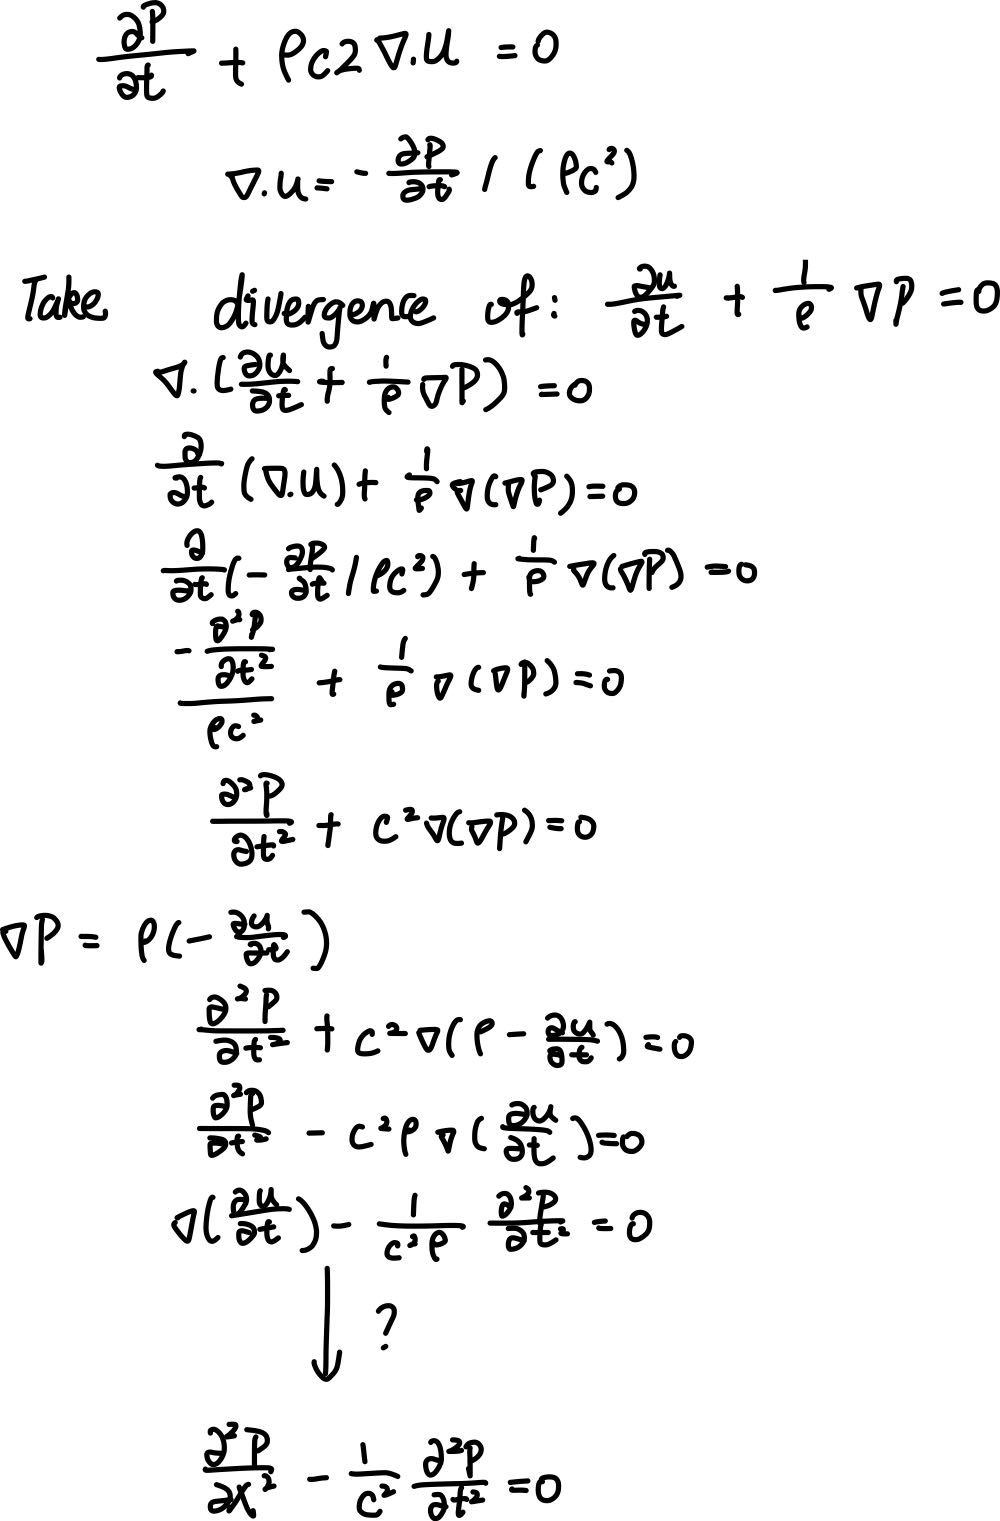 ∂P/∂t + ρc2 ∇.u = 0
∇.u = - ∂P/∂t / (ρc²)
Take divergence of: ∂u/∂t + 1/ρ ∇P = 0
∇.(∂u/∂t + 1/ρ ∇P) = 0
∂/∂t (∇.u) + 1/ρ ∇(∇P) = 0
∂/∂t (- ∂P/∂t / ρc²) + 1/ρ ∇(∇P) = 0
(- ∂²P/∂t²)/(ρc²) + 1/ρ ∇(∇P) = 0
∂²P/∂t² + c²∇(∇P) = 0
∇P = ρ(- ∂u/∂t)
∂²P/∂t² + c²∇(ρ - ∂u/∂t) = 0
∂²P/∂t² - c²ρ ∇(∂u/∂t) = 0
∇(∂u/∂t) - 1/(c²ρ) ∂²P/∂t² = 0
↓ ?
∂²P/∂x² - 1/c² ∂²P/∂t² = 0